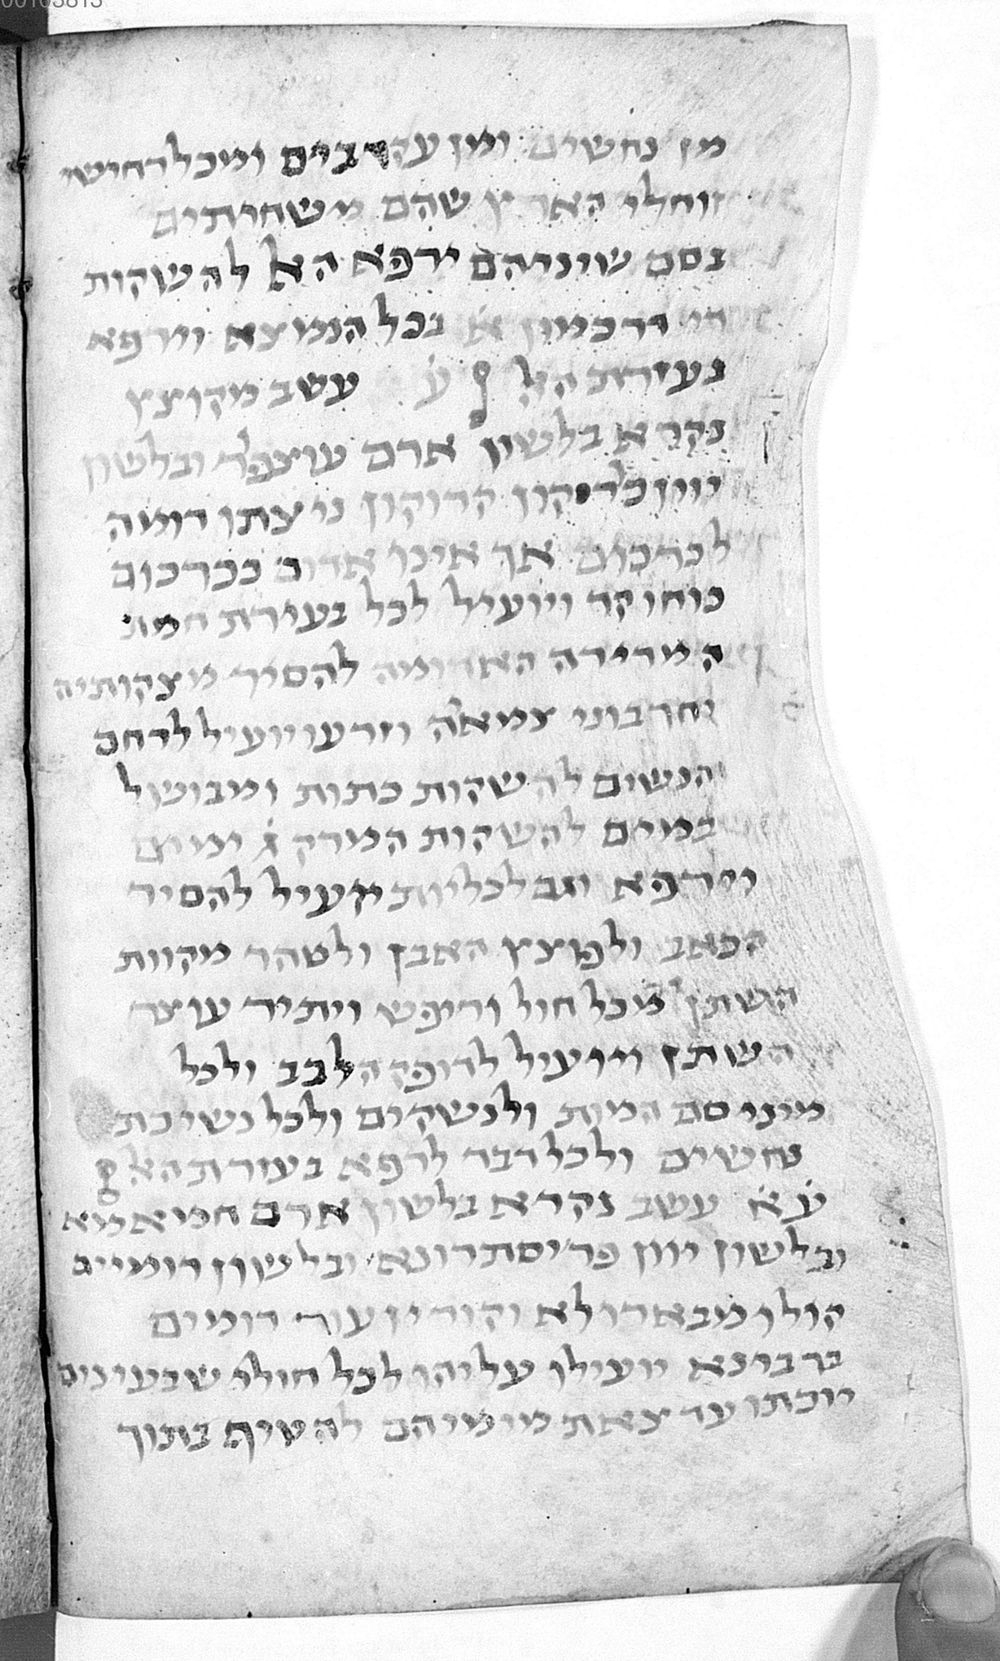 00103813
מן נחשים ומן עקרבים ומכל רחישי
וזוחלי הארץ שהם משחיתים
בסם שיניהם ירפא האל להשקות
דרכמון א בכל הנמצא וירפא
בעזרת האל עשב מקוצץ
נקרא בלשון ארם עוצפר ובלשון
יוון קרוקון דומה
לכרכום אך אינו אדום ככרכום
כוחו קר ויועיל לכל בעירת חמת
המרירה האדומה להסיר מצקותיה
וחרבוני צמאה וזרעו יועיל לרחם
הנשים להשקות כתות ומבושל
במים להשקות המרק ג ימים
וירפא וגם לכליות יועיל להסיר
הכאב ולפוצץ האבן ולטהר מקוות
השתן מכל חול וריפש ויתיר עוצר
השתן ויועיל לדופק הלבב ולכל
מיני סם המות ולנשקים ולכל נשיכת
נחשים ולכל דבר לרפא בעזרת האל
עשב נקרא בלשון ארם
ובלשון יוון פריסתרונא ובלשון רומיים
קולומבארולא וקורין עוד רומים
ברבינא יועילו עליהו לכל חולי שבעינים
יוכתו עד צאת מימיהם להטיף בתוך